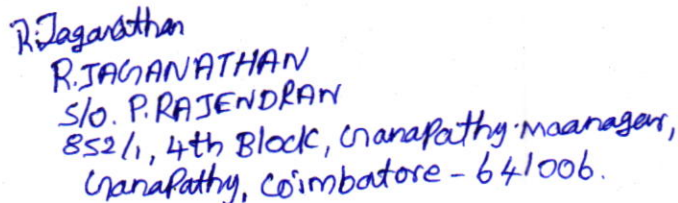 R.Jaganathan
R.JAGANATHAN
S/o. P.RAJENDRAN
852/1, 4th Block, Ganapathy.maanagar,
Ganapathy, Coimbatore - 641006.